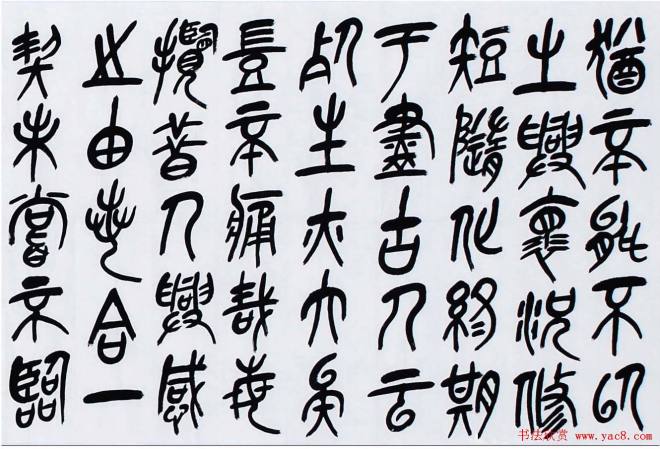 猶不能不以
之興懷況修
短隨化終期
于盡古人云
死生亦大矣
豈不痛哉每
攬昔人興感
之由若合一
契未嘗不臨
书法欣赏 www.yac8.com